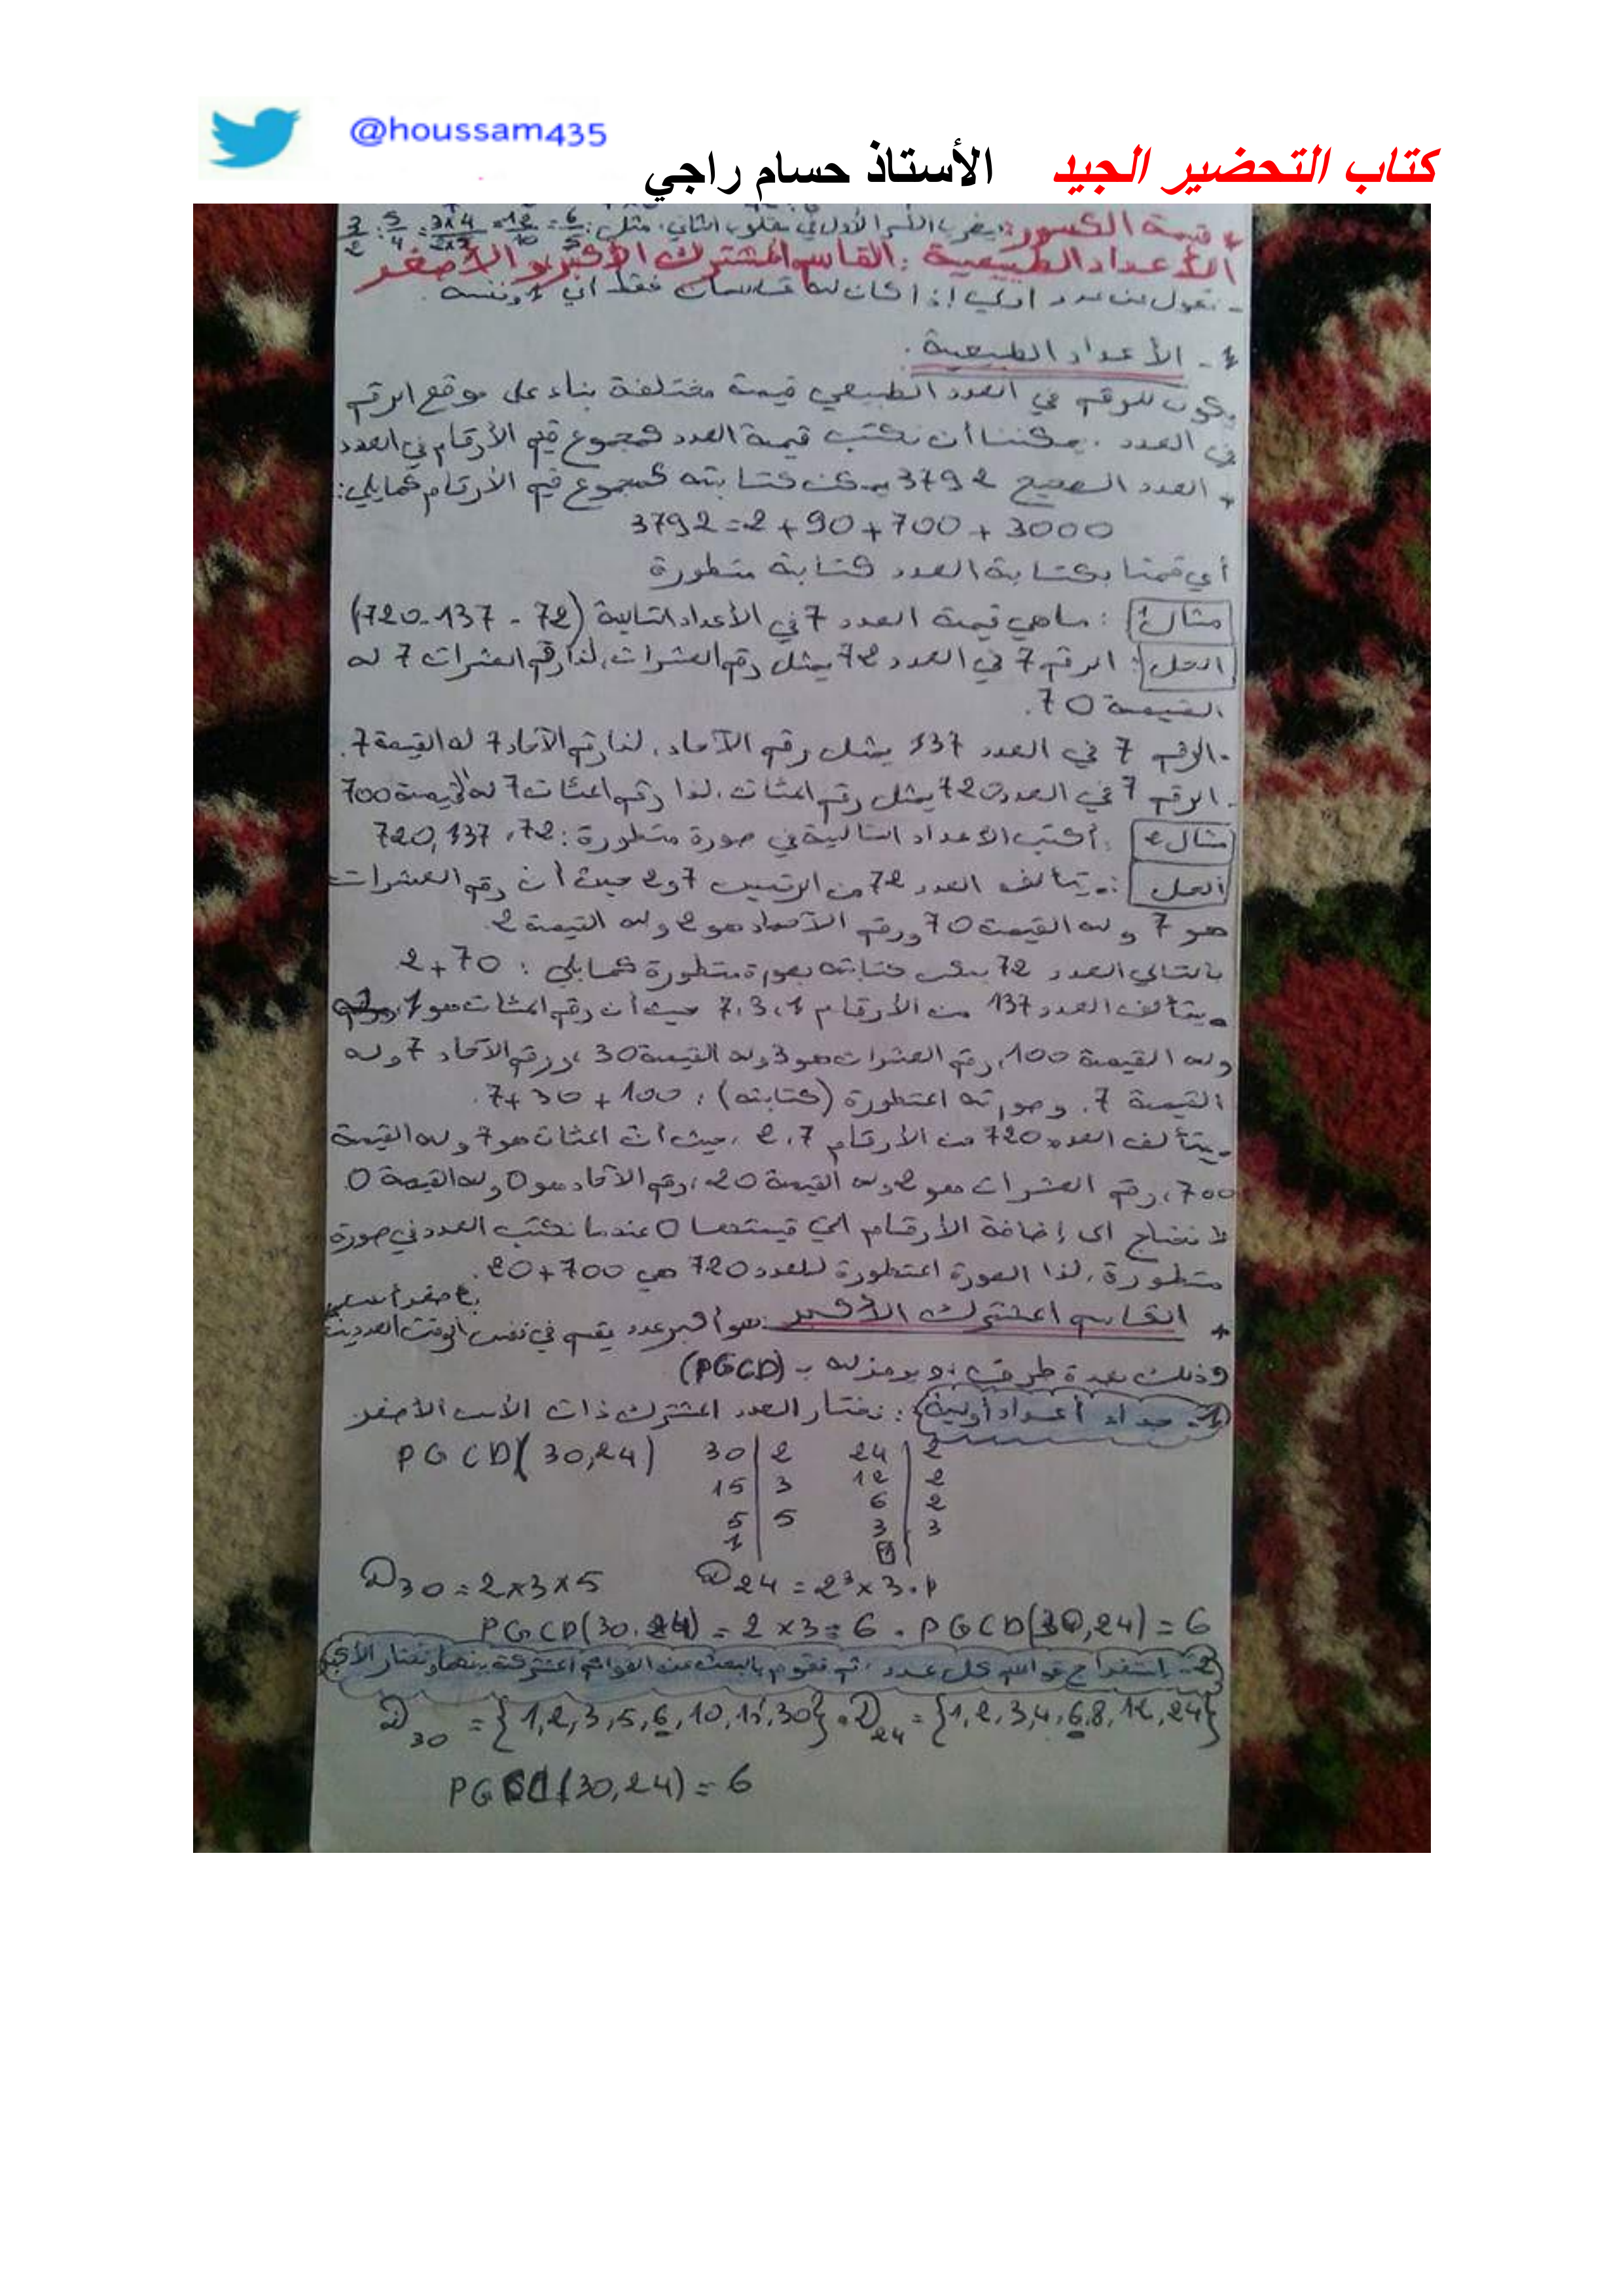 @houssam435
كتاب التحضير الجيد الأستاذ حسام راجي
* قسمة الكسور: يضرب الكسر الأول في مقلوب الثاني. مثل: 3/2 : 5/4 = 3x4/2x5 = 12/10 = 6/5
الأعداد الطبيعية: القاسم المشترك الأكبر والأصغر
- نقول عن عدد أولي إذا كان له قاسمان فقط أي 1 ونفسه.
1- الأعداد الطبيعية.
يكون للرقم في العدد الطبيعي قيمة مختلفة بناء على موقع الرقم
في العدد. يمكننا أن نكتب قيمة العدد كمجموع قيم الأرقام في العدد
* العدد الصحيح 3792 يمكن كتابته كمجموع قيم الأرقام كمايلي:
3792=2+90+700+3000
أي قمنا بكتابة العدد كتابة متطورة
مثال1: ماهي قيمة العدد 7 في الأعداد التالية (72 - 137 - 720)
الحل: الرقم 7 في العدد 72 يمثل رقم العشرات، لذا رقم العشرات 7 له
القيمة 70.
- الرقم 7 في العدد 137 يمثل رقم الآحاد، لذا رقم الآحاد 7 له القيمة 7.
- الرقم 7 في العدد 720 يمثل رقم المئات، لذا رقم المئات 7 له القيمة 700
مثال2: أكتب الأعداد التالية في صورة متطورة: 72، 137, 720
الحل: - يتألف العدد 72 من الرقمين 7 و 2 حيث أن رقم العشرات
هو 7 وله القيمة 70 ورقم الآحاد هو 2 وله القيمة 2.
بالتالي العدد 72 يمكن كتابته بصورة متطورة كمايلي: 2+70
- يتألف العدد 137 من الأرقام 1، 3، 7 حيث أن رقم المئات هو 1،
وله القيمة 100، رقم العشرات هو 3 وله القيمة 30، ورقم الآحاد 7 وله
القيمة 7. وصورته المتطورة (كتابته): 7+30+100.
- يتألف العدد 720 من الأرقام 7، 2، حيث أن المئات هو 7 وله القيمة
700، رقم العشرات هو 2 وله القيمة 20، رقم الآحاد هو 0 وله القيمة 0.
لا نحتاج الى إضافة الأرقام التي قيمتها 0 عندما نكتب العدد في صورة
متطورة، لذا الصورة المتطورة للعدد 720 هي 20+700.
* القاسم المشترك الأكبر: هو أكبر عدد يقسم في نفس الوقت العددين
وذلك بعدة طرق: ويرمز له بـ (PGCD)
1- جداء أعداد أولية: نختار العدد المشترك ذات الأس الأصغر
PGCD(30,24) 30|2 24|2
15|3 12|2
6|2
5|5 3|3
1 1
D30=2x3x5 D24=2³x3.1
PGCD(30.24)=2x3=6. PGCD(30,24)=6
2- استخراج قواسم كل عدد، ثم نقوم بالبحث عن القواسم المشتركة بينهما ونختار الأكبر
D30={1,2,3,5,6,10,15,30}. D24={1,2,3,4,6,8,12,24}
PGCD(30,24)=6